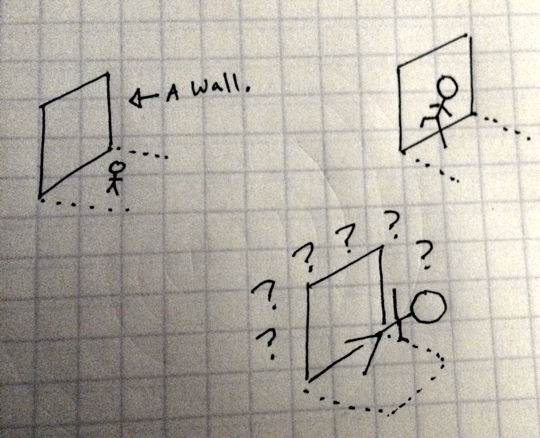 ← A wall.
?
?
?
?
?
?